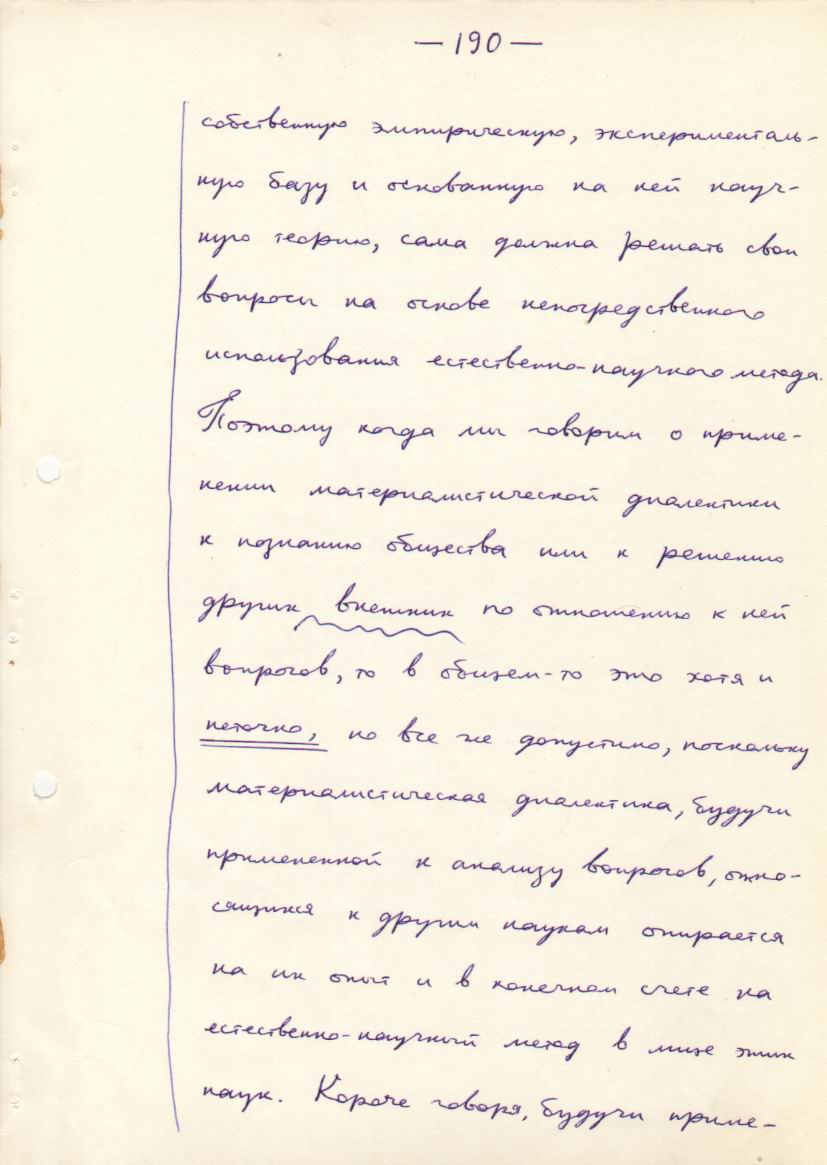 — 190 —
собственную эмпирическую, эксперименталь-
ную базу и основанную на ней науч-
ную теорию, сама должна решать свои
вопросы на основе непосредственного
использования естественно-научного метода.
Поэтому когда мы говорим о приме-
нении материалистической диалектики
к познанию общества или к решению
других внешних по отношению к ней
вопросов, то в общем-то это хотя и
неточно, но все же допустимо, поскольку
материалистическая диалектика, будучи
примененной к анализу вопросов, отно-
сящихся к другим наукам опирается
на их опыт и в конечном счете на
естественно-научный метод в лице этих
наук. Короче говоря, будучи приме-